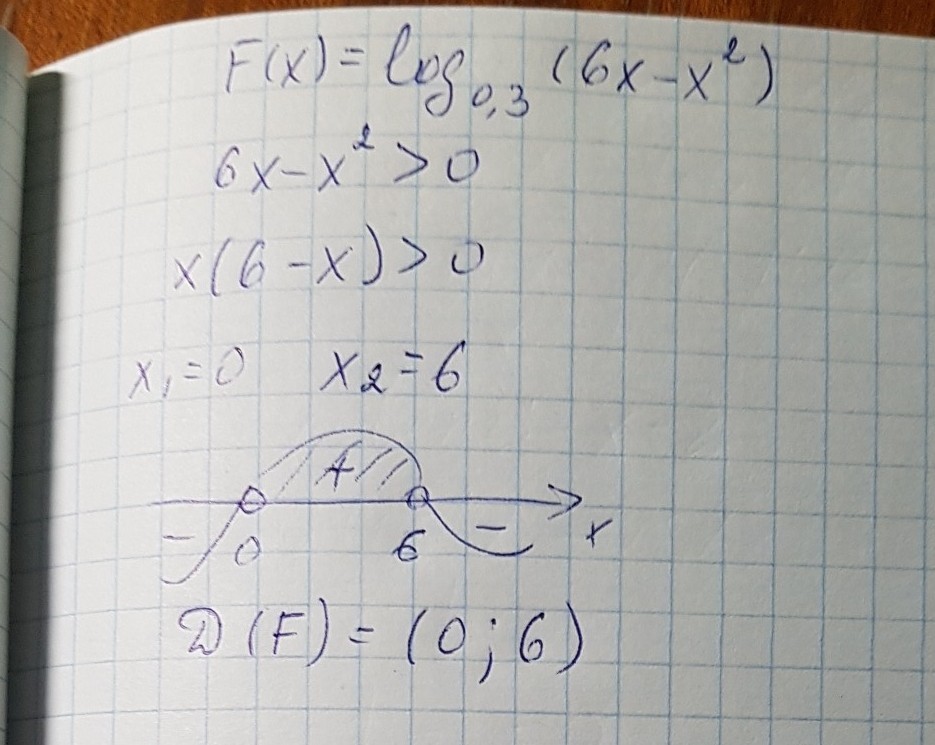 F(x) = log₀,₃ (6x - x²)
6x - x² > 0
x(6 - x) > 0
x₁ = 0 x₂ = 6
+
- 0 6 - x
D(F) = (0; 6)